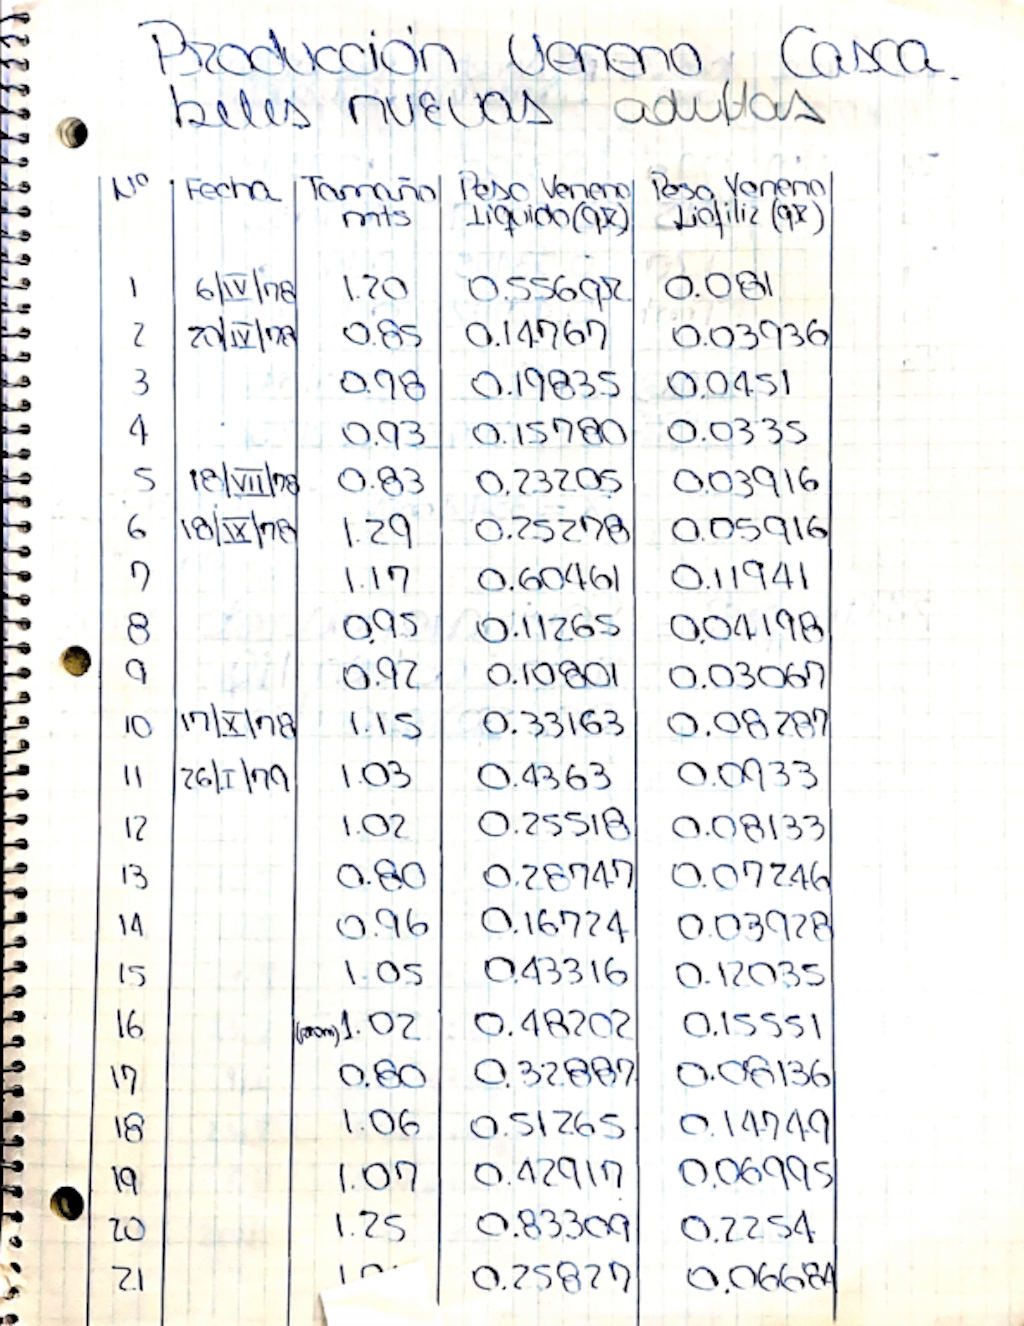 Producción Veneno Casca-
beles nuevas adultas
Nº Fecha Tamaño mts Peso Veneno Liquido (gr) Peso Veneno Liofiliz (gr)
1 6/IV/78 1.20 0.55692 0.081
2 20/IV/78 0.85 0.14767 0.03936
3 0.98 0.19835 0.0451
4 0.93 0.15780 0.0335
5 18/VII/78 0.83 0.23205 0.03916
6 18/IX/78 1.29 0.25278 0.05916
7 1.17 0.60461 0.11941
8 0.95 0.11265 0.04198
9 0.92 0.10801 0.03067
10 17/X/78 1.15 0.33163 0.08287
11 26/I/79 1.03 0.4363 0.0933
12 1.02 0.25518 0.08133
13 0.80 0.28747 0.07246
14 0.96 0.16724 0.03928
15 1.05 0.43316 0.12035
16 (prom) 1.02 0.48202 0.15551
17 0.80 0.32887 0.08136
18 1.06 0.51265 0.14749
19 1.07 0.42917 0.06995
20 1.25 0.83309 0.2254
21 0.25827 0.06684